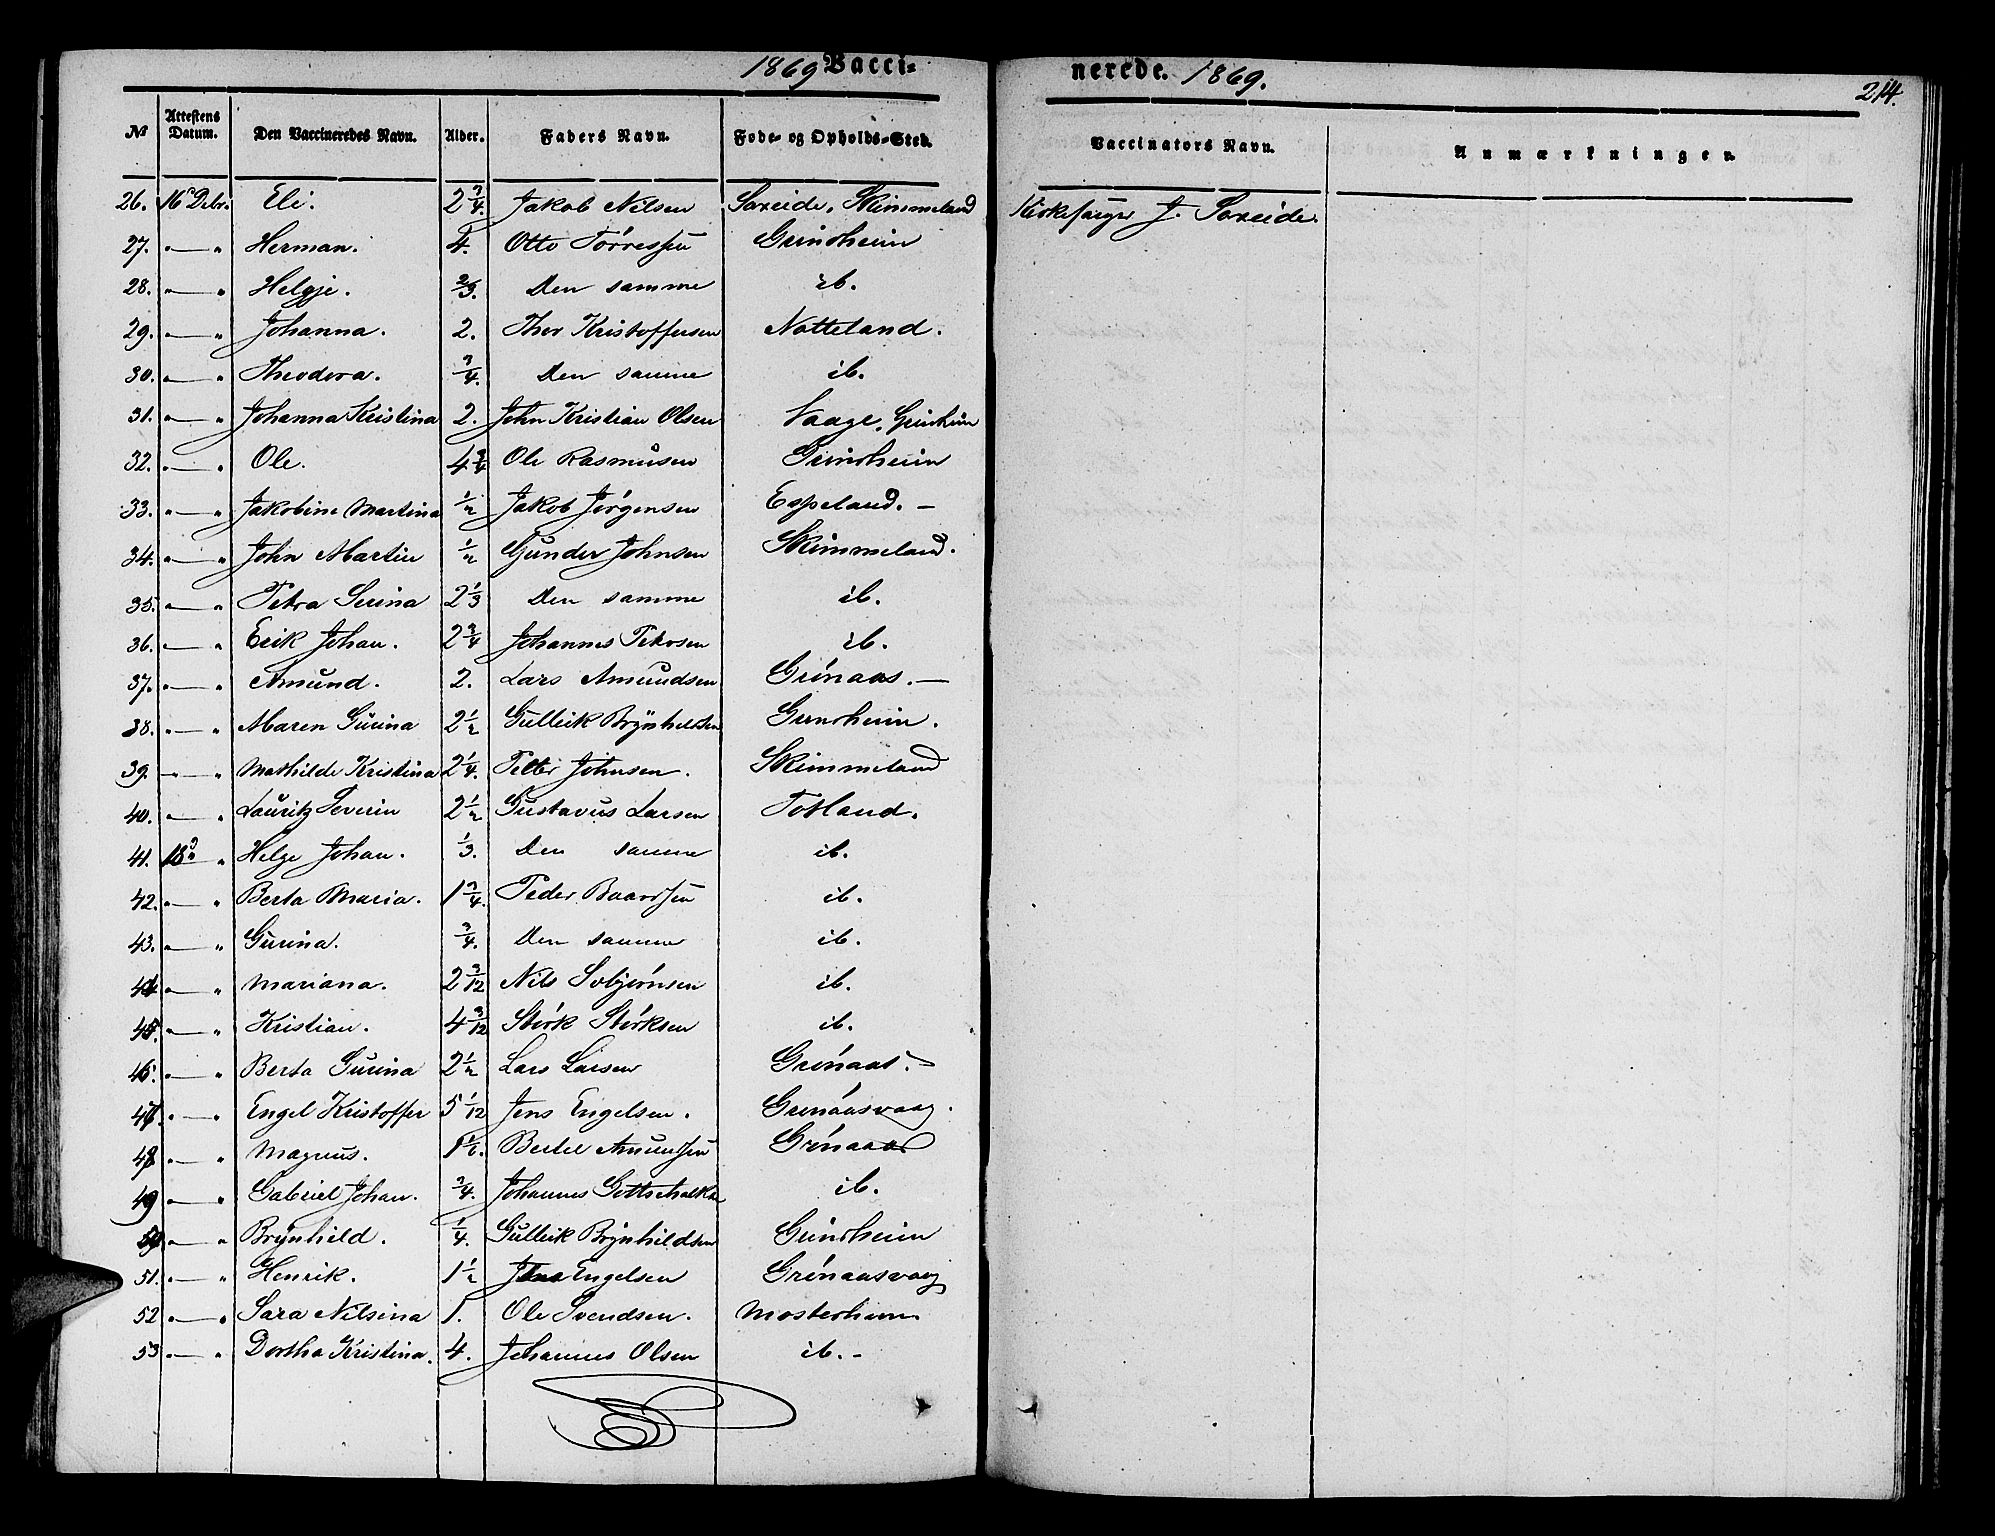 1869 Vacci-
nerede. 1869.
214.
№ Attestens Datum. Den Vaccineredes Navn. Alder. Faders Navn. Føde- og Opholds-Sted. Vaccinators Navn. Anmærkninger.
26. 16 Debr. Eli. 2 3/4. Jakob Nilsen Saxeide, Skimmeland Kirkesanger J. Saxeide.
27. " — " Herman. 4. Otto Tørressen Grindheim
28. " — " Helgje. 2/3. Den samme ib.
29. " — " Johanna. 2. Thor Kristoffersen Notteland.
30. " — " Theodora. 3/4. Den samme ib.
31. " — " Johanna Kristina 2. John Kristian Olsen Vaage, Grindheim
32. " — " Ole. 4 3/4 Ole Rasmusen Grindheim
33. " — " Jakobine Martina 1/2 Jakob Jørgensen Espeland. —
34. " — " John Martin 1/2 Gunder Johnsen Skimmeland.
35. " — " Petra Serina 2 1/3 Den samme ib.
36. " — " Erik Johan. 2 3/4 Johannes ib.
37. " — " Amund. 2. Lars Amundsen Grönaas. —
38. " — " Maren Gurina 2 1/2 Gulleik Brynhildsen Grindheim.
39. " — " Mathilde Kristina 2 1/4. Petter Johnsen. Skimmeland
40. " — " Lauritz Severin 2 1/2 Gustavus Larsen Totland.
41. 18 " Helge Johan. 1/3. Den samme ib.
42. " — " Berta Maria. 1 3/4. Peder Baardsen ib.
43. " — " Gurina. 3/4. Den samme ib.
44. " — " Mariana. 2 3/12 Nils Asbjørnsen ib.
45. " — " Kristian. 4 3/12 Størk Størksen ib.
46. " — " Berta Gurina 2 1/2 Lars Larsen Grönaas. —
47. " — " Engel Kristoffer 5 1/12 Jens Engelsen. Grönaasvaag.
48. " — " Magnus. 1 1/2. Bertel Amundsen Grönaas
49. " — " Gabriel Johan. 3/4. Johannes Gottschalks ib.
50. " — " Brynhild. 1/4. Gulleik Brynhildsen Grindheim
51. " — " Henrik. 1 1/2 Jens Engelsen Grönaasvaag
52 " — " Sara Nilsina 1. Ole Svendsen. Mosterhavn
53 " — " Dortha Kristina. 4. Johannes Olsen ib. -